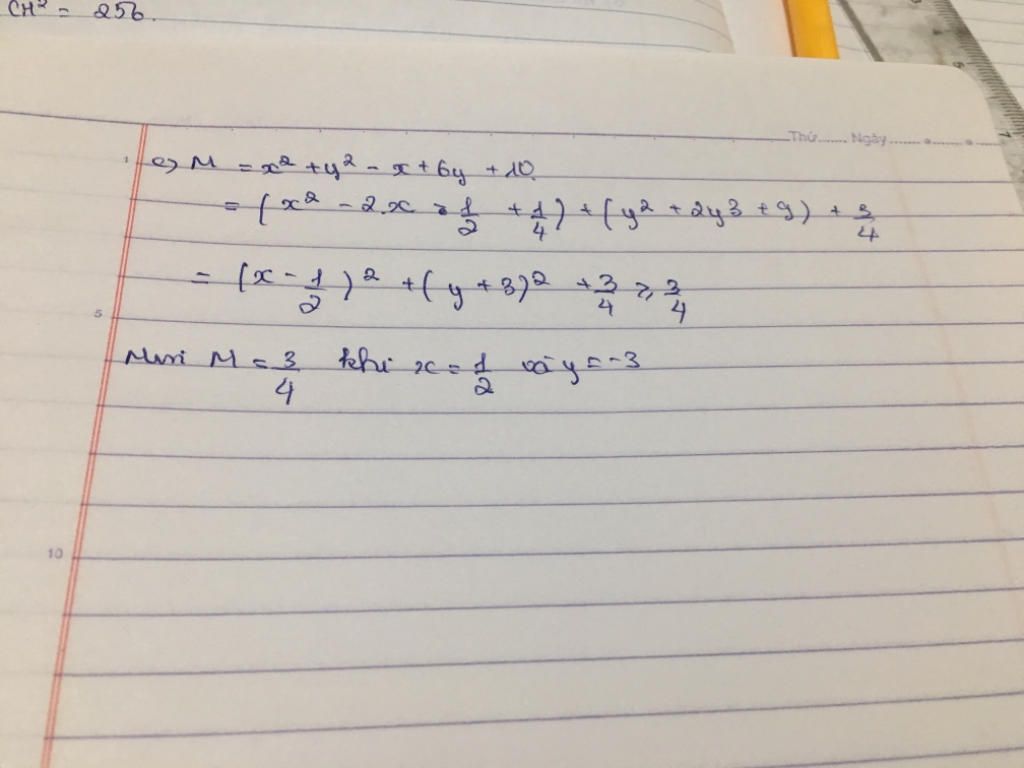 CH² = 256.
Thứ........ Ngày.........
c) M = x² + y² - x + 6y + 10.
= (x² - 2.x . 1/2 + 1/4) + (y² + 2y3 + 9) + 3/4
= (x - 1/2)² + (y + 3)² + 3/4 ≥ 3/4
5
Min M = 3/4 khi x = 1/2 và y = -3
10